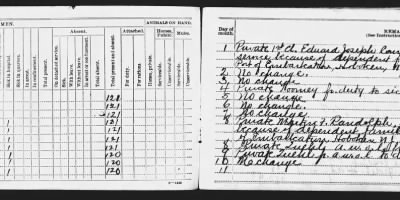 MEN.
ANIMALS ON HAND.
Attached.
Horses, Public.
Mules.
Sick in hospital.
Sick in quarters.
In arrest.
In confinement.
Total present.
On detached service.
Sick.
With leave.
Without leave.
In arrest or confinement.
Total absent.
Total present and absent.
For duty.
For rations.
Horses, private.
Serviceable.
Unserviceable.
Serviceable.
121
1 121
1 121
1 121
1 121
1 121
1 120
1 120
1 120
Day of month.
REMA
(See Instruction
1 Private 1st Cl. Edward Joseph
service because of dependent
Port of Embarkation, Hoboken, N
2 No change.
3 No change.
4 Private Rooney fr. duty to sic
5 No change
6 No change.
7 No change
8 Private Martin F. Randolph
because of dependent famil
of Embarkation, Hoboken N
8 Private a.w.o.l.
9 Private a.w.o.l. to d
10 No change
11